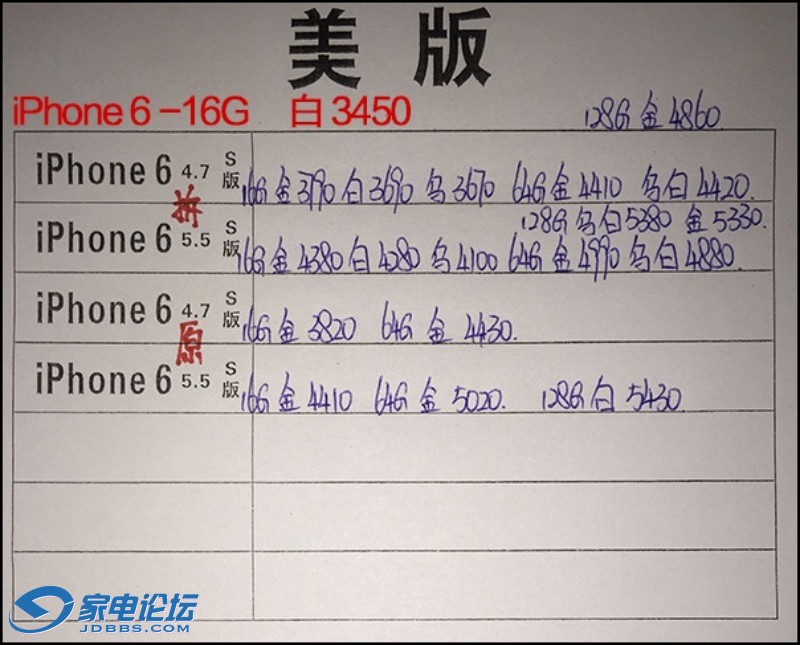 美版
iPhone 6 –16G 白 3450
128G 金 4860
iPhone 6 4.7 S版 16G 金 3790 白 3690 乌 3670 64G 金 4410 乌白 4420.
拆
128G 乌白 5380 金 5330.
iPhone 6 5.5 S版 16G 金 4380 白 4280 乌 4100 64G 金 4990 乌白 4880.
iPhone 6 4.7 S版 16G 金 3820 64G 金 4430.
原
iPhone 6 5.5 S版 16G 金 4410 64G 金 5020. 128G 白 5430.
家电论坛
JDBBS.COM